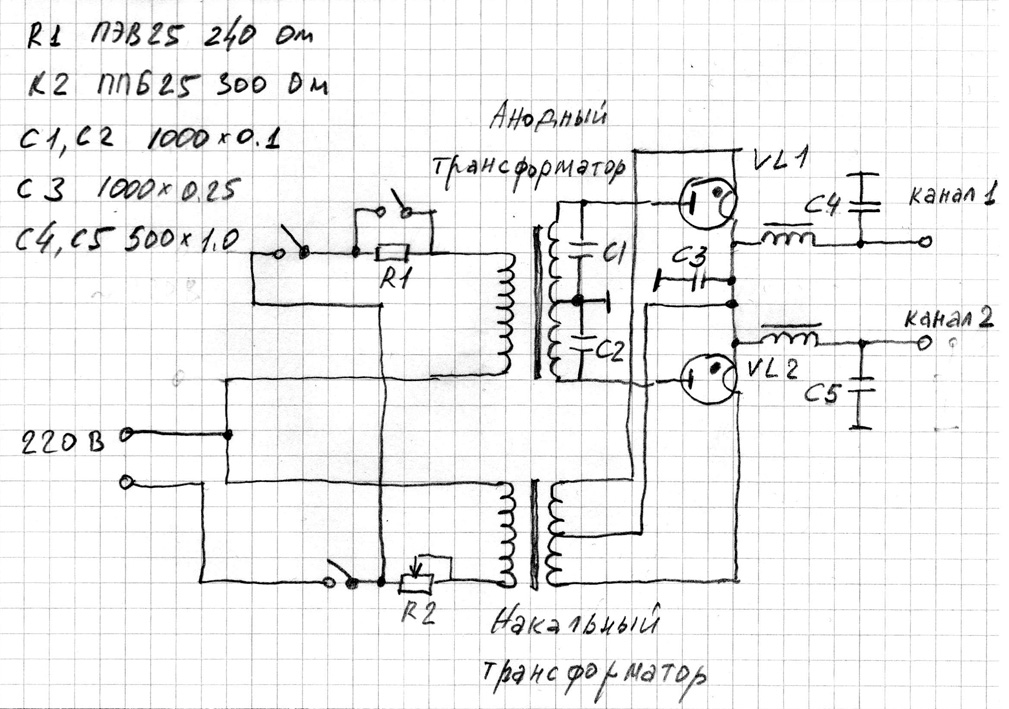 R1 ПЭВ25 240 Ом
R2 ППБ25 300 Ом
C1, C2 1000×0.1
C3 1000×0.25
C4, C5 500×1.0
Анодный
трансформатор
VL1
C4
канал 1
R1
C1
C3
C2
канал 2
VL2
C5
220 В
R2
Накальный
трансформатор